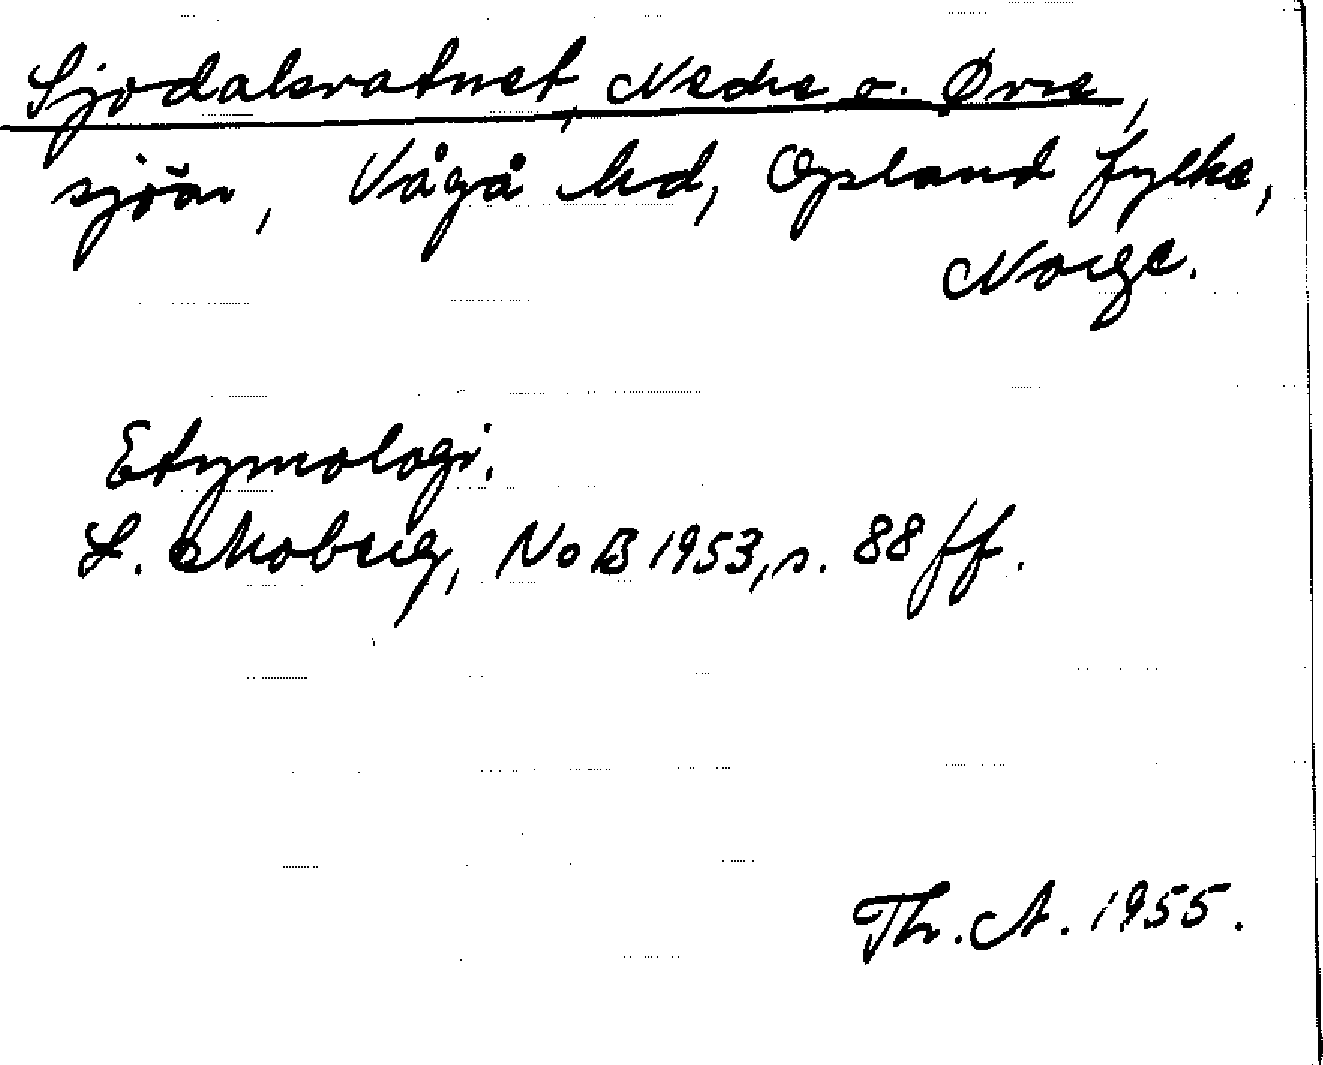 Sjodalsvatnet, Nedre o. Øvre,
sjöar, Vågå hd, Opland fylke,
Norge.
Etymologi.
L. Moberg, NoB 1953, s. 88 ff.
Th. A. 1955.